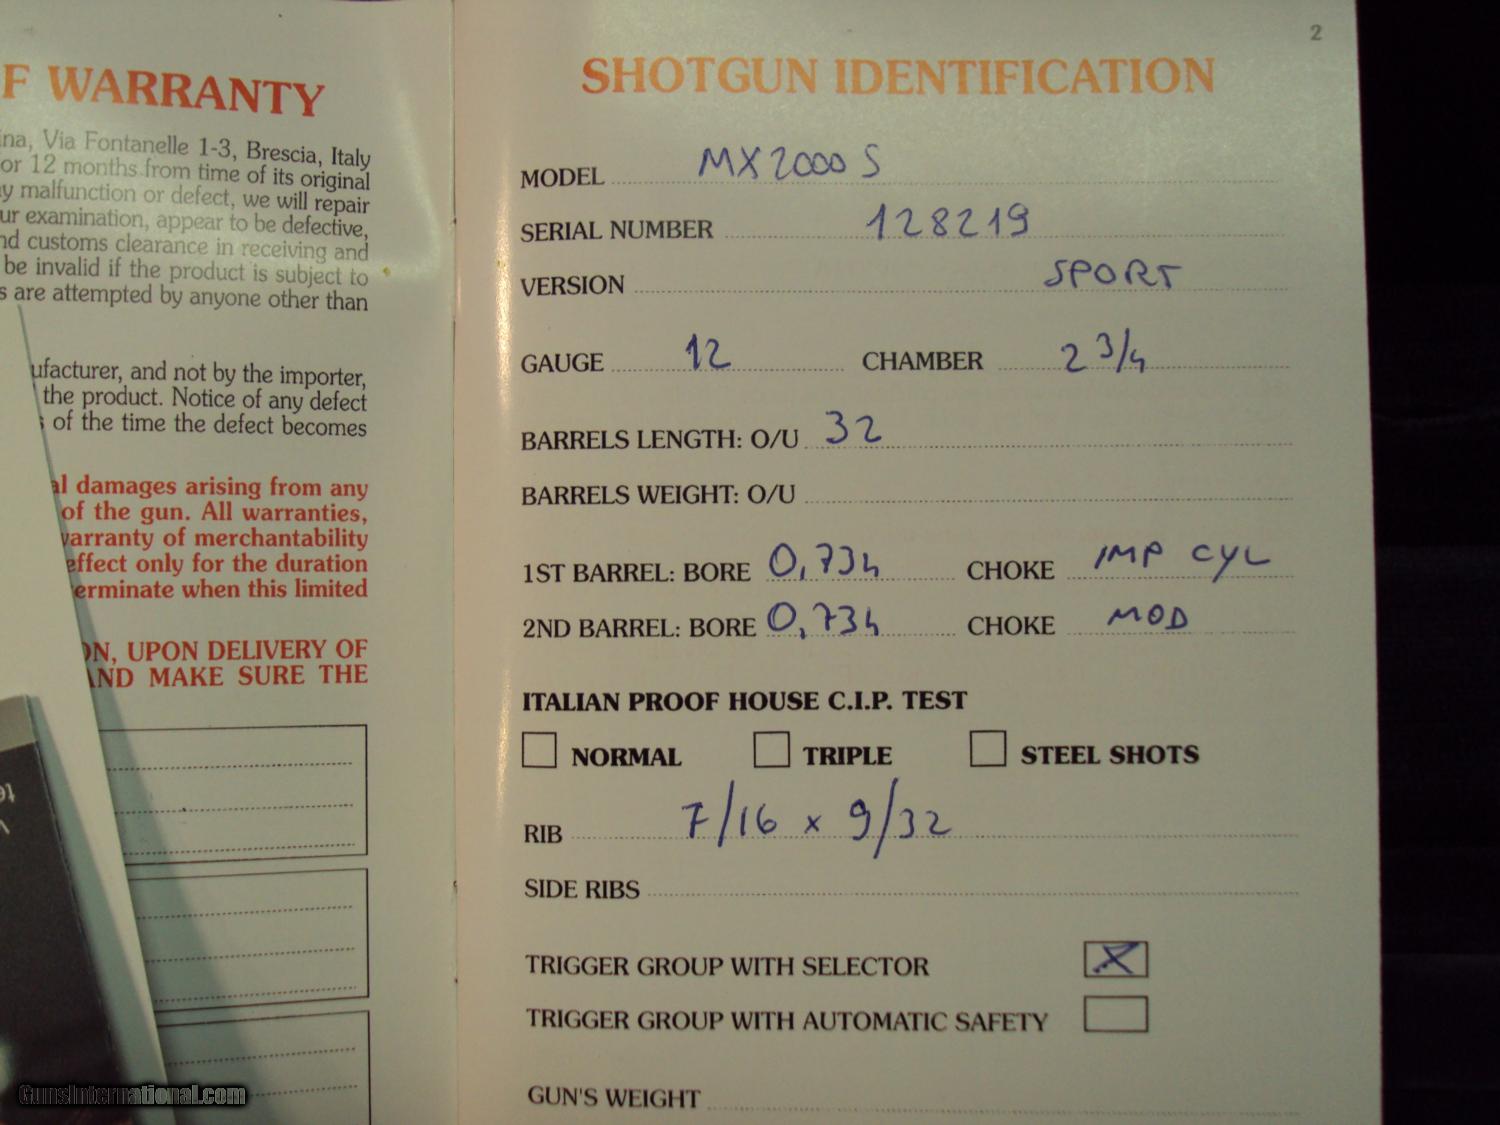 F WARRANTY
ina, Via Fontanelle 1-3, Brescia, Italy
or 12 months from time of its original
y malfunction or defect, we will repair
ur examination, appear to be defective,
nd customs clearance in receiving and
be invalid if the product is subject to
s are attempted by anyone other than
ufacturer, and not by the importer,
the product. Notice of any defect
of the time the defect becomes
al damages arising from any
of the gun. All warranties,
warranty of merchantability
effect only for the duration
erminate when this limited
ON, UPON DELIVERY OF
AND MAKE SURE THE
2
SHOTGUN IDENTIFICATION
MODEL MX2000 S
SERIAL NUMBER 128219
VERSION SPORT
GAUGE 12 CHAMBER 2 3/4
BARRELS LENGTH: O/U 32
BARRELS WEIGHT: O/U
1ST BARREL: BORE 0,734 CHOKE IMP CYL
2ND BARREL: BORE 0,734 CHOKE MOD
ITALIAN PROOF HOUSE C.I.P. TEST
NORMAL TRIPLE STEEL SHOTS
RIB 7/16 x 9/32
SIDE RIBS
TRIGGER GROUP WITH SELECTOR X
TRIGGER GROUP WITH AUTOMATIC SAFETY
GUN'S WEIGHT
GunsInternational.com